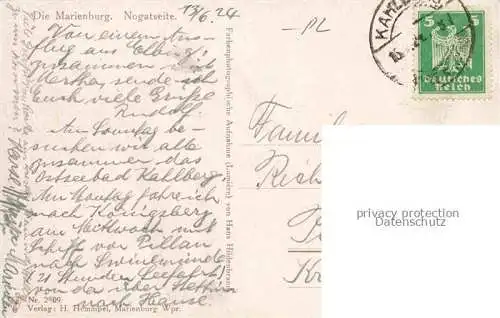 Die Marienburg. Nogatseite.
15/6. 24
PL
Von einem Aus-
flug aus Elbing
zusammen mit
Hertha, sende ich
Euch viele Grüße
Rudolf.
Am Sonntag be-
suchen wir alle
zusammen das
Ostseebad Kahlberg.
Am Montag fahre ich
nach Königsberg
am Mittwoch mit
Schiff von Pillau
nach Swinemünde
(21 Stunden Seefahrt)
von da über Stettin
nach Hause.
Nr. 2809
Verlag: H. Hemmpel, Marienburg Wpr.
Farbenphotographische Aufnahme (Lumière) von Hans Hildenbrand
KAHLBERG
5 5
Deutsches
Reich
Famil
privacy protection
Datenschutz